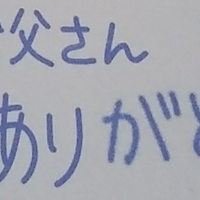 父さん
ありがと